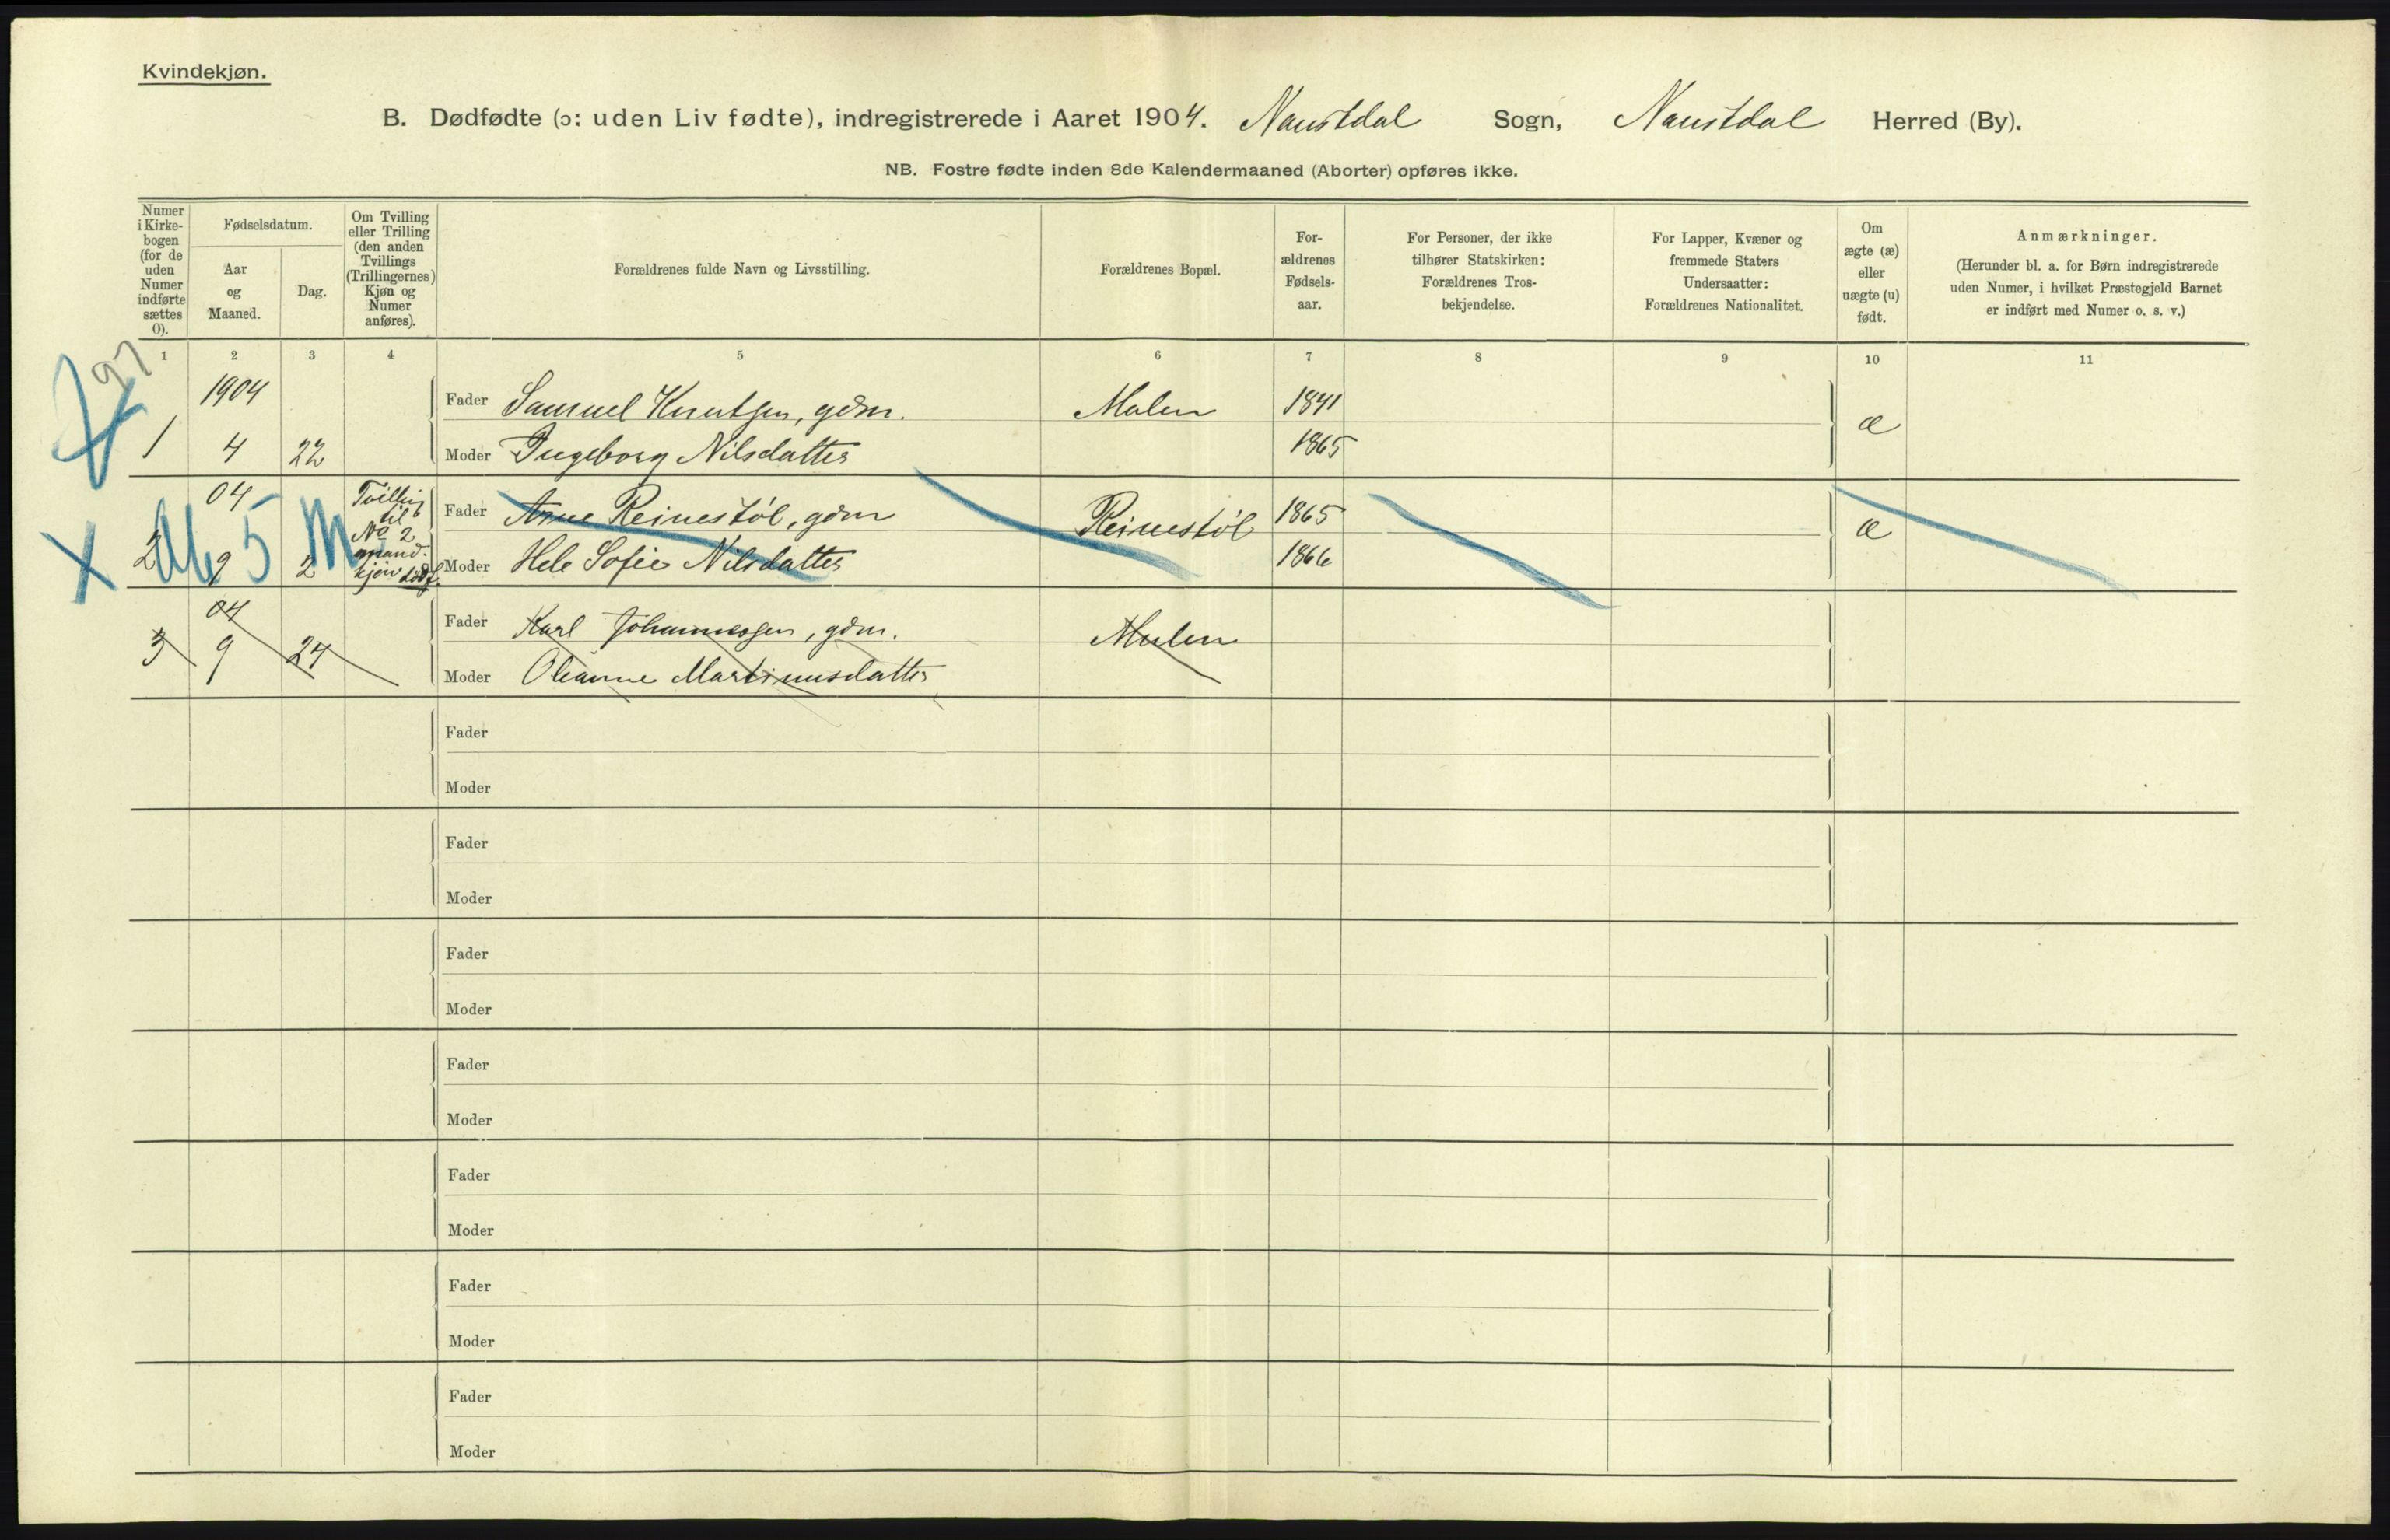 Kvindekjøn.
B. Dødfødte (ɔ: uden Liv fødte), indregistrerede i Aaret 1904. Naustdal Sogn, Naustdal Herred (By).
NB. Fostre fødte inden 8de Kalendermaaned (Aborter) opføres ikke.
Numer i Kirke-bogen (for de uden Numer indførte sættes 0).
Fødselsdatum.
Aar og Maaned.
Dag.
Om Tvilling eller Trilling (den anden Tvillings (Trillingernes) Kjøn og Numer anføres).
Forældrenes fulde Navn og Livsstilling.
Forældrenes Bopæl.
For-ældrenes Fødsels-aar.
For Personer, der ikke tilhører Statskirken: Forældrenes Tros-bekjendelse.
For Lapper, Kvæner og fremmede Staters Undersaatter: Forældrenes Nationalitet.
Om ægte (æ) eller uægte (u) født.
Anmærkninger.
(Herunder bl. a. for Børn indregistrerede uden Numer, i hvilket Præstegjeld Barnet er indført med Numer o. s. v.)
1 2 3 4 5 6 7 8 9 10 11
97
1904 Fader Samuel Knutsen, gdm. Malen 1841 æ
1 4 22 Moder Ingeborg Nilsdatter 1865
04 Tvilling til No 2 mand. kjøn dødf.
Fader Arne Reinestøl, gdm Reinestøl 1865 æ
2 9 2 Moder Hele Sofie Nilsdatter 1866
5 M
X
04 Fader Karl Johannessen, gdm. Malen
3 9 24 Moder Olianne Martinusdatter
Fader
Moder
Fader
Moder
Fader
Moder
Fader
Moder
Fader
Moder
Fader
Moder
Fader
Moder